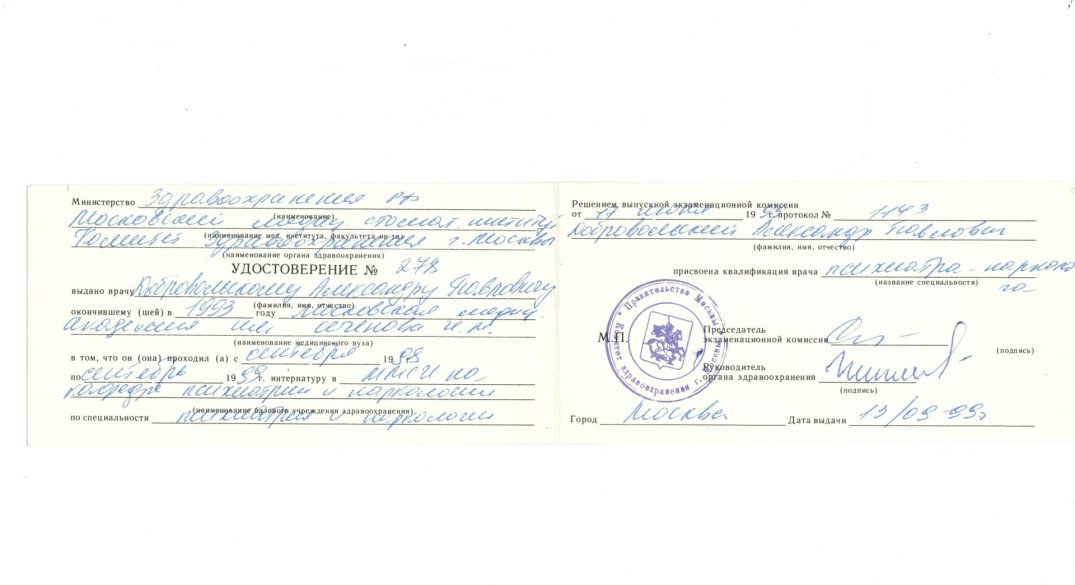 Министерство Здравоохранения РФ
(наименование)
Московский медиц стомат. институт
(наименование мед. института, факультета ин-та)
Комитет Здравоохранения г. Москвы
(наименование органа здравоохранения)
УДОСТОВЕРЕНИЕ № 278
выдано врачу Добровольскому Александру Павловичу
(фамилия, имя, отчество)
окончившему (шей) в 1993 году Московская медиц.
академия им Сеченова И.М.
(наименование медицинского вуза)
в том, что он (она) проходил (а) с сентября 1998
по сентябрь 1999 г. интернатуру в ММСИ на
кафедре психиатрии и наркологии
(наименование базового учреждения здравоохранения)
по специальности психиатрия и наркологии
Решением выпускной экзаменационной комиссии
от 11 июня 1999 г. протокол № 1143
Добровольский Александр Павлович
(фамилия, имя, отчество)
присвоена квалификация врача психиатра - нарколо
(название специальности)
га
Правительство Москвы
Комитет здравоохранения г. Москвы
М.П.
Председатель
экзаменационной комиссии
(подпись)
Руководитель
органа здравоохранения
(подпись)
Город Москва Дата выдачи 13/09-99г